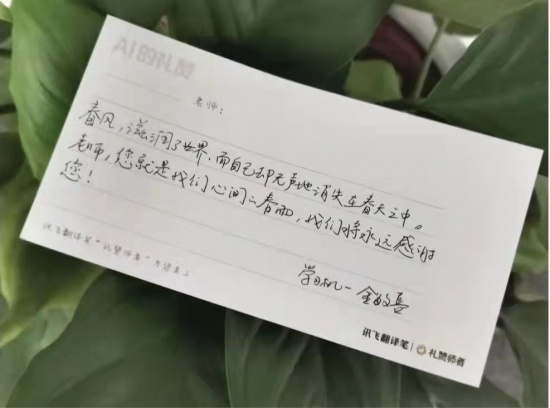 AI的礼赞
老师：
春风，滋润了世界，而自己却无声地消失在春天之中。
老师，您就是我们心间之春雨，我们将永远感谢
您！
讯飞翻译笔“礼赞师者”
金
讯飞翻译笔 | 礼赞师者